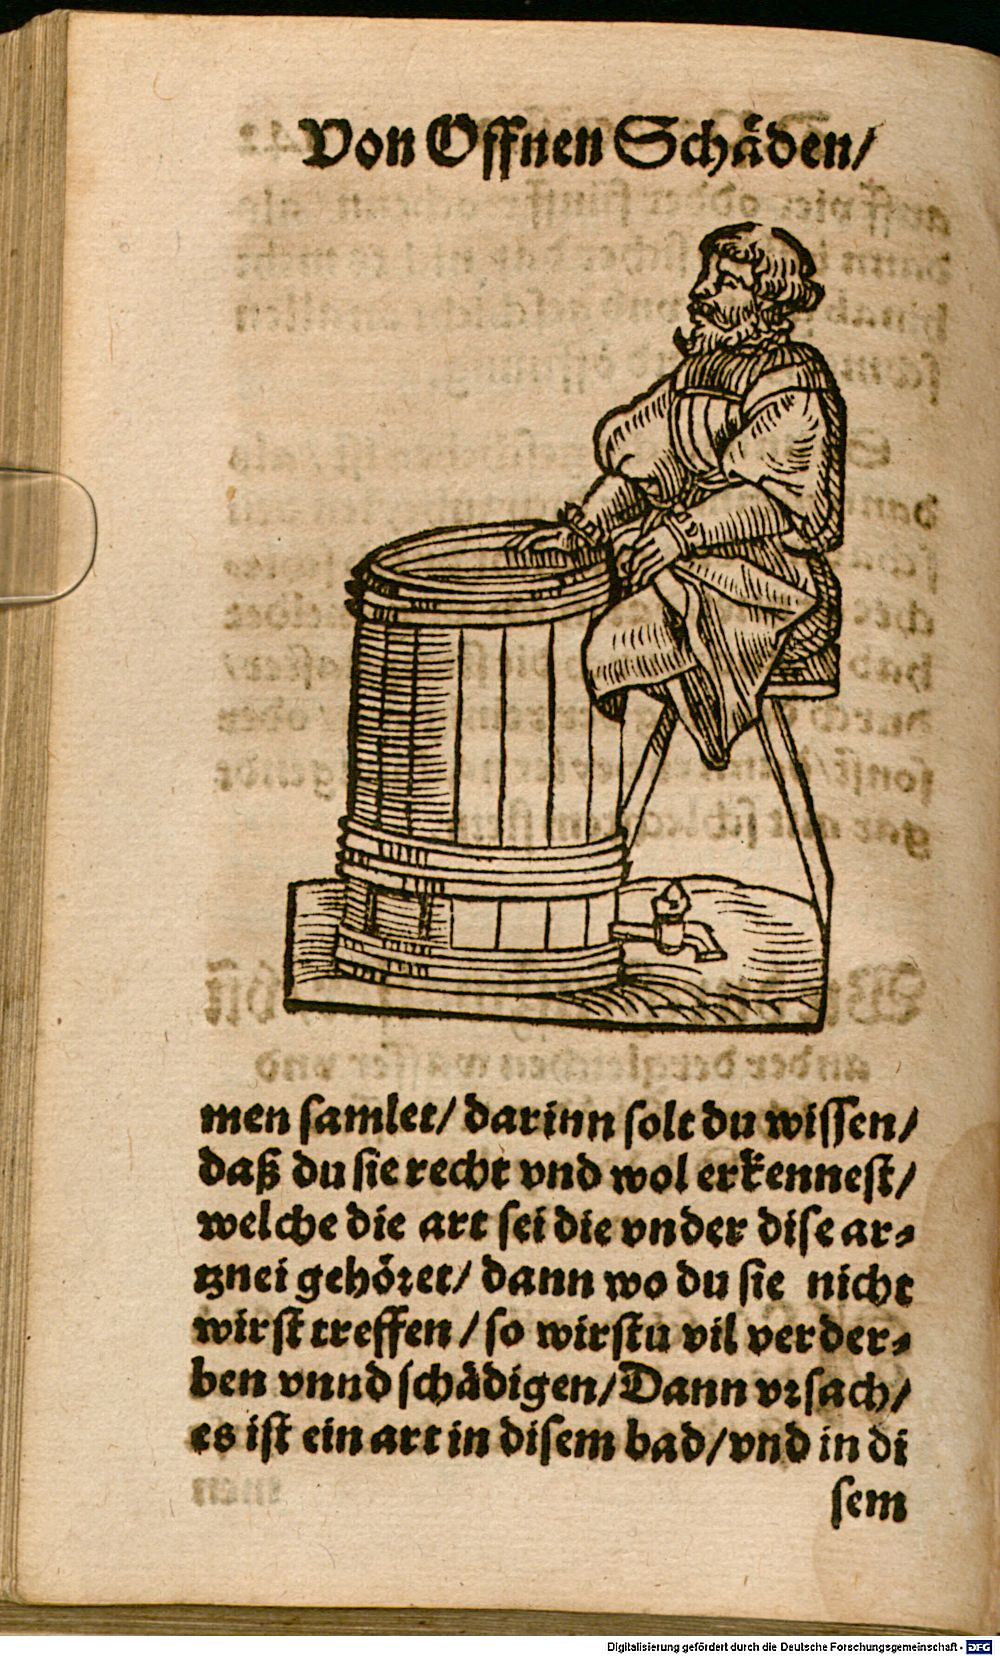 Von Offnen Schäden/
men samlet/ darinn solt du wissen/
daß du sie recht vnd wol erkennest/
welche die art sei die vnder dise ar-
tznei gehöret/ dann wo du sie nicht
wirst treffen/ so wirstu vil verder-
ben vnnd schädigen/ Dann vrsach/
es ist ein art in disem bad/ vnd in di
sem
Digitalisierung gefördert durch die Deutsche Forschungsgemeinschaft - DFG